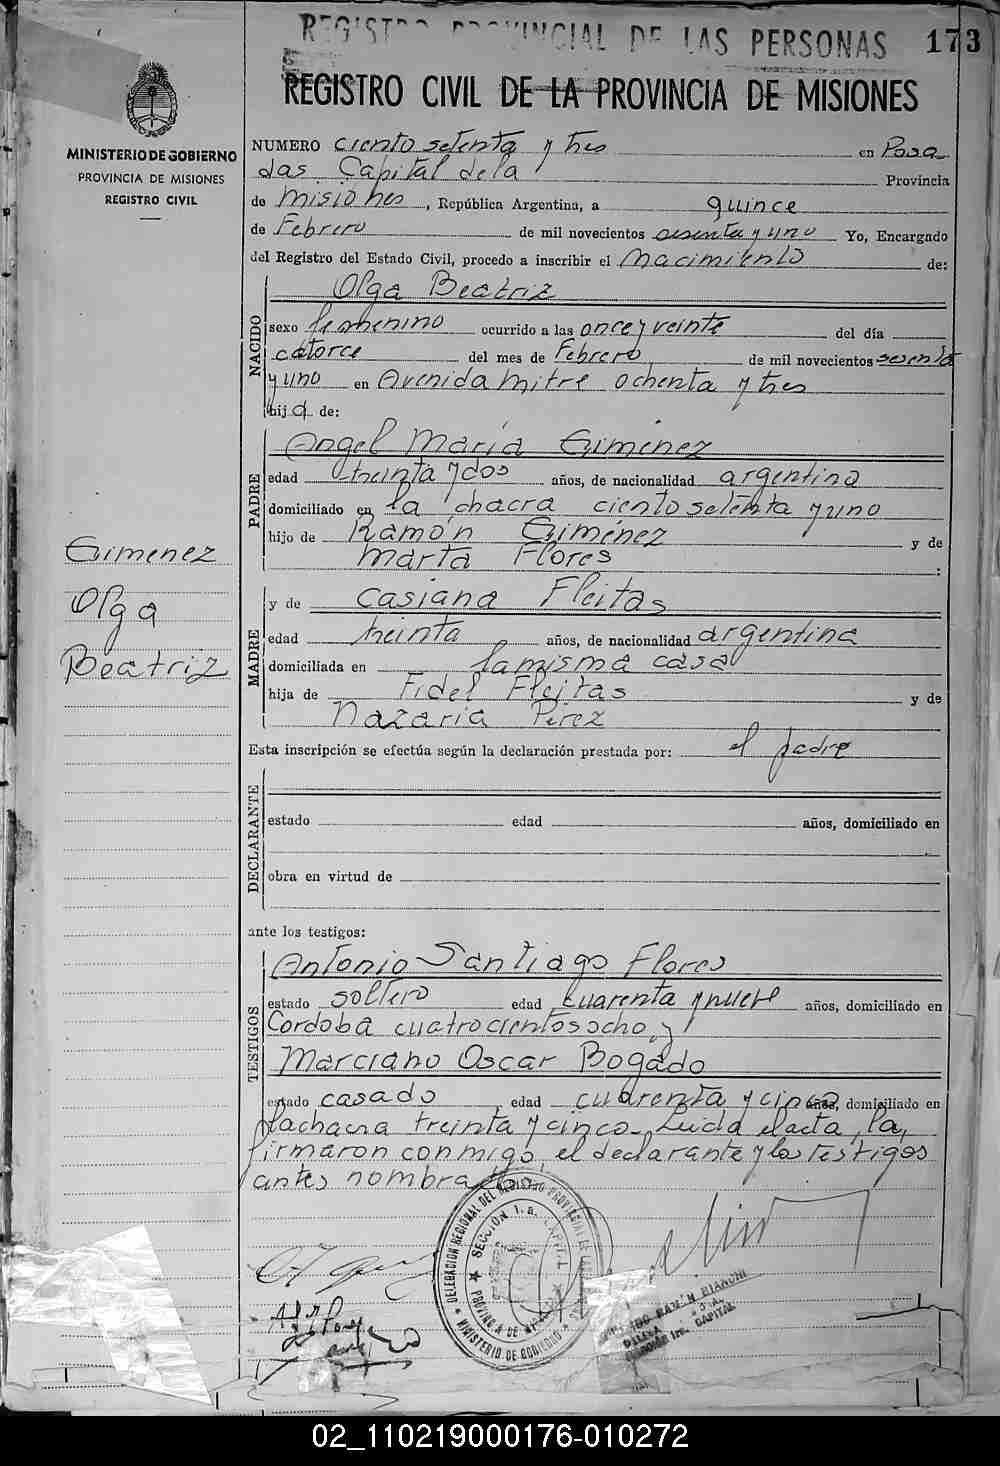 REGISTRO PROVINCIAL DE LAS PERSONAS 173
REGISTRO CIVIL DE LA PROVINCIA DE MISIONES
MINISTERIO DE GOBIERNO
PROVINCIA DE MISIONES
REGISTRO CIVIL
NUMERO ciento setenta y tres en Posa
das Capital de la Provincia
de Misiones, República Argentina, a quince
de Febrero de mil novecientos sesenta y uno Yo, Encargado
del Registro del Estado Civil, procedo a inscribir el Nacimiento de:
NACIDO
Olga Beatriz
sexo femenino ocurrido a las once y veinte del día
catorce del mes de Febrero de mil novecientos sesenta
y uno en Avenida Mitre ochenta y tres
hija de:
PADRE
Angel María Giménez
edad treinta y dos años, de nacionalidad argentina
domiciliado en la chacra ciento setenta y uno
hijo de Ramón Giménez y de
Marta Flores :
Gimenez
Olga
Beatriz
MADRE
y de Casiana Fleitas
edad treinta años, de nacionalidad argentina
domiciliada en la misma casa
hija de Fidel Fleitas y de
Nazaria Pérez
Esta inscripción se efectúa según la declaración prestada por: el padre
DECLARANTE
estado edad años, domiciliado en
obra en virtud de
ante los testigos:
TESTIGOS
Antonio Santiago Flores
estado soltero edad cuarenta y nueve años, domiciliado en
Cordoba cuatrocientos ocho y
Marciano Oscar Bogado
estado casado edad cuarenta y cinco años, domiciliado en
la chacra treinta y cinco. Leida el acta, la,
firmaron conmigo, el declarante y los testigos
antes nombrados.
DELEGACION REGIONAL DEL REGISTRO PROVINCIAL DE LAS PERSONAS
SECCION 1a. CAPITAL
PROVINCIA DE MISIONES
MINISTERIO DE GOBIERNO
RAMÓN BIANCHI
CAPITAL
02_110219000176-010272